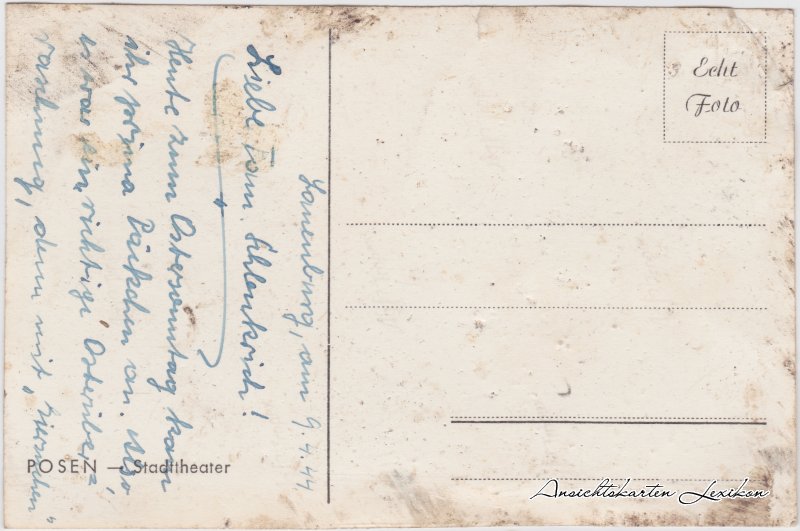 Lauenburg, am 9.4.44
Liebe Fam. Schlenkrich!
Heute zum Ostersonntag kam
ihr prima Päckchen an. Also,
es war ein richtige Osterüber=
raschung, denn mit
POSEN — Stadttheater
Echt
Foto
Ansichtskarten Lexikon